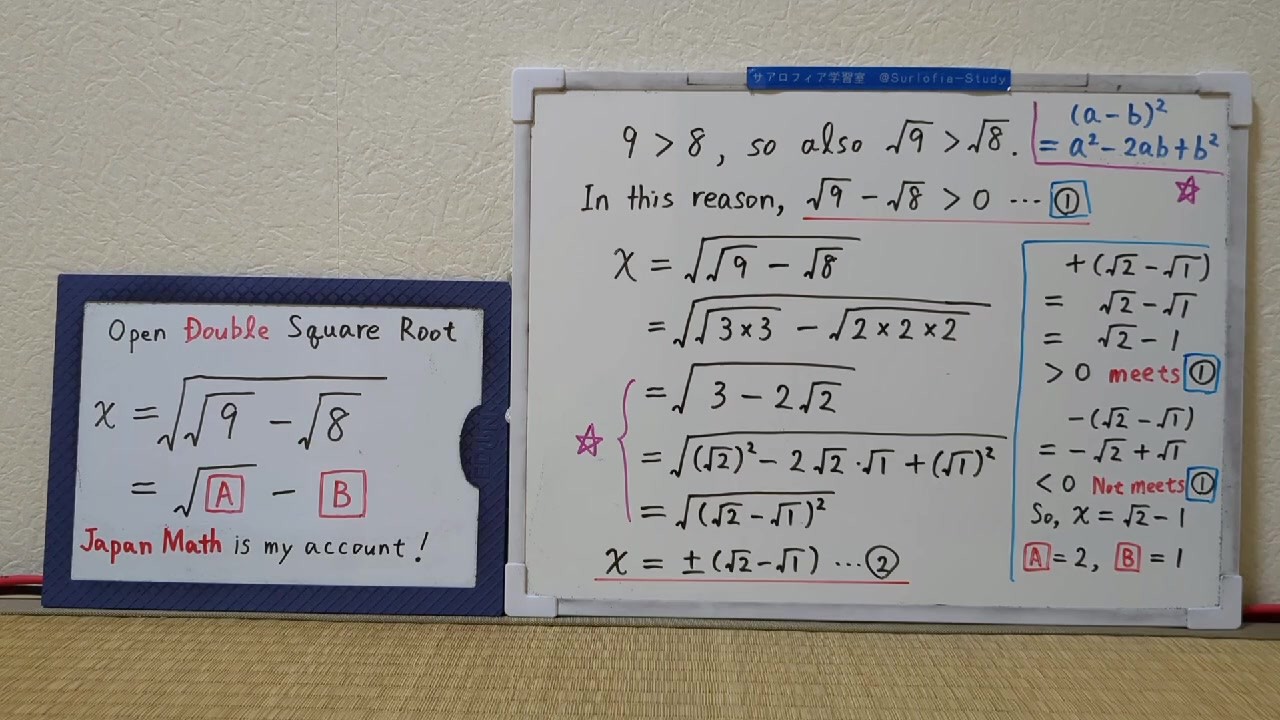 Open Double Square Root
x = √(√9 - √8)
= √A - B
Japan Math is my account!
サアロフィア学習室 @Surlofia-Study
9 > 8, so also √9 > √8.
In this reason, √9 - √8 > 0 … ①
(a - b)²
= a² - 2ab + b²
☆
x = √(√9 - √8)
= √(√(3×3) - √(2×2×2))
= √(3 - 2√2)
☆
= √((√2)² - 2√2·√1 + (√1)²)
= √((√2 - √1)²)
x = ±(√2 - √1) … ②
+(√2 - √1)
= √2 - √1
= √2 - 1
> 0 meets ①
-(√2 - √1)
= -√2 + √1
< 0 Not meets ①
So, x = √2 - 1
A = 2, B = 1